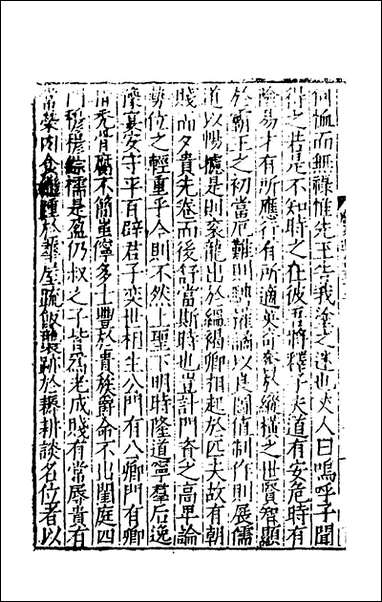 何恤而無祿惟先王告我塗之速也丈人曰嗚呼子聞
得之若是不知時之在彼吾將釋子夫道有安危時有
險易才有所應行有所適英奇奮於縱橫之世賢智顯
於霸王之初當厄難則騁權譎以良圖值制作則展儒
道以暢攄是則袞龍出於緼褐卿相起於匹夫故有朝
賤而夕貴先卷而後舒當斯時也豈計門資之高卑論
勢位之輕重乎今則不然上聖下明時隆道寧羣后逸
豫宴安守平百辟君子奕世相生公門有公卿門有卿
指禿骨腐不簡蚩儜多士豐於貴族爵命不出閨庭四
門穆穆綺襦是盈仍叔之子皆爲老成賤有常辱貴有
常榮肉食繼踵於華屋疏飯襲跡於耨耕談名位者以